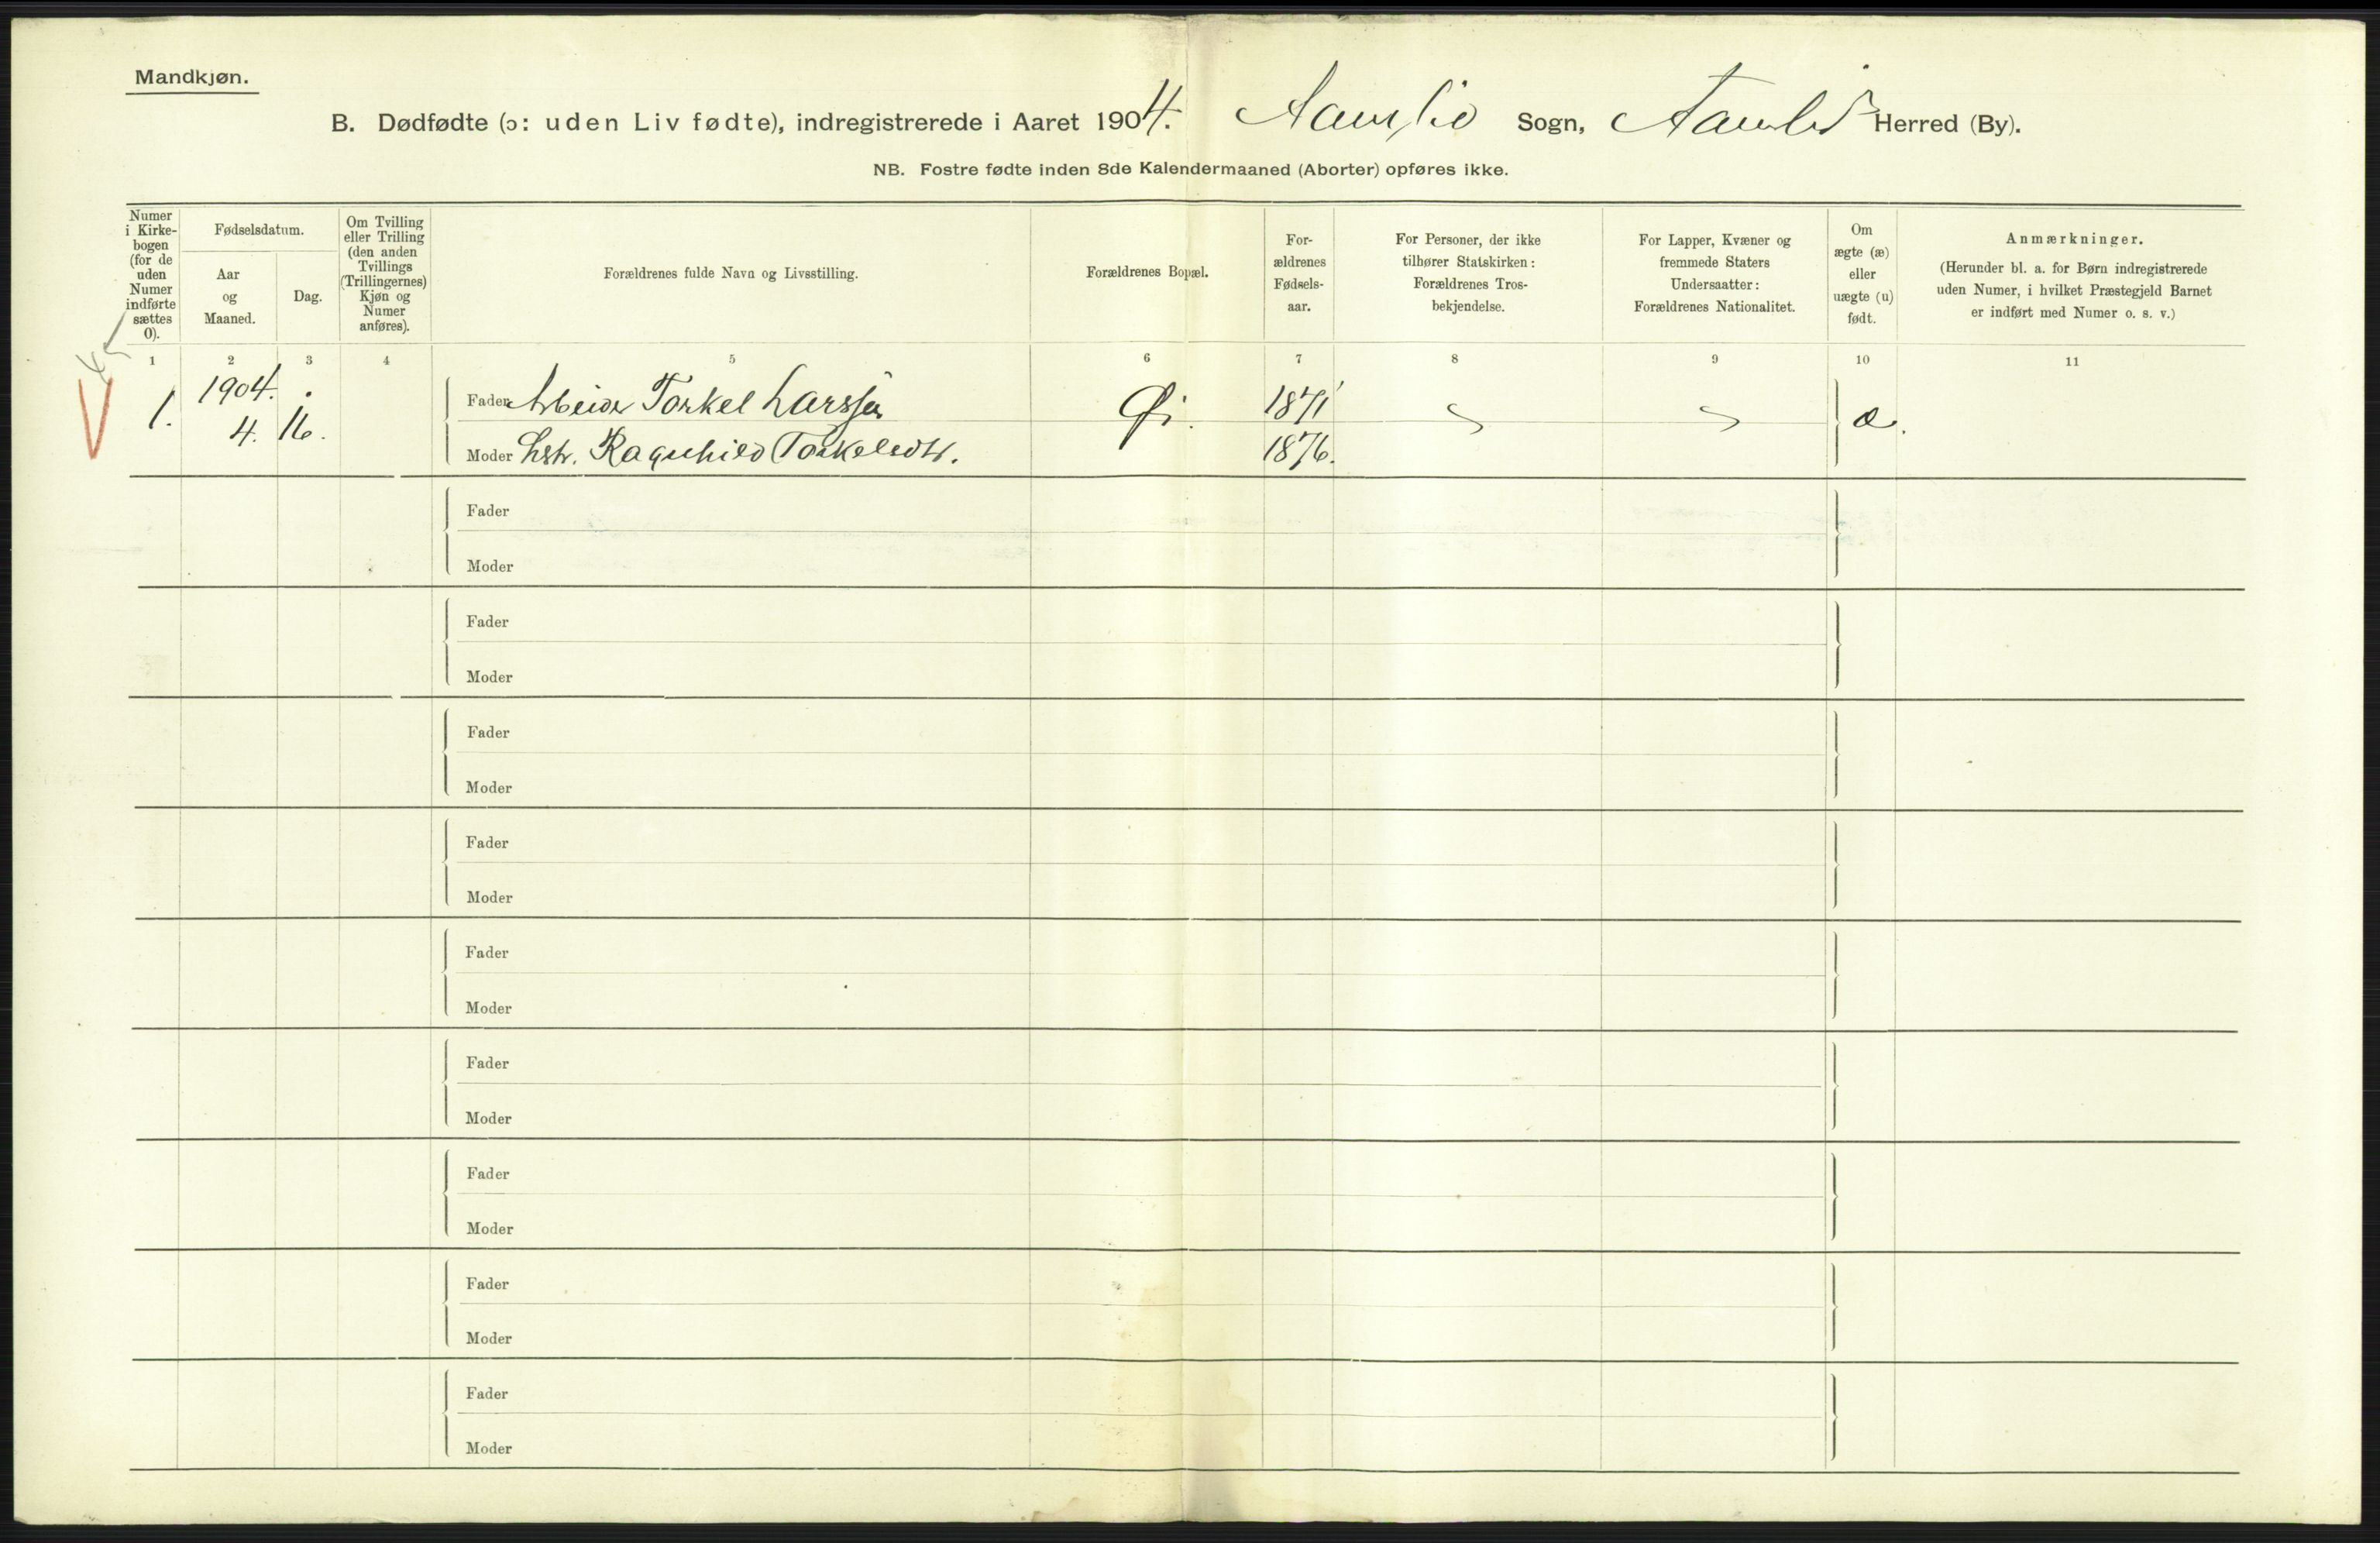 Mandkjøn.
B. Dødfødte (ɔ: uden Liv fødte), indregistrerede i Aaret 1904. Aamlid Sogn, Aamlid Herred (By).
NB. Fostre fødte inden 8de Kalendermaaned (Aborter) opføres ikke.
Numer
i Kirke-
bogen
(for de
uden
Numer
indførte
sættes
0).
Fødselsdatum.
Aar
og
Maaned.
Dag.
Om Tvilling
eller Trilling
(den anden
Tvillings
(Trillingernes)
Kjøn og
Numer
anføres).
Forældrenes fulde Navn og Livsstilling.
Forældrenes Bopæl.
For-
ældrenes
Fødsels-
aar.
For Personer, der ikke
tilhører Statskirken:
Forældrenes Tros-
bekjendelse.
For Lapper, Kvæner og
fremmede Staters
Undersaatter:
Forældrenes Nationalitet.
Om
ægte (æ)
eller
uægte (u)
født.
Anmærkninger.
(Herunder bl. a. for Børn indregistrerede
uden Numer, i hvilket Præstegjeld Barnet
er indført med Numer o. s. v.)
1 2 3 4 5 6 7 8 9 10 11
1. 1904. 4. 16.
Fader Arbeider Torkel Larssen Øi. 1871
Moder Hstr. Ragnhild Torkelsdtr. 1876. æ.
Fader
Moder
Fader
Moder
Fader
Moder
Fader
Moder
Fader
Moder
Fader
Moder
Fader
Moder
Fader
Moder
Fader
Moder